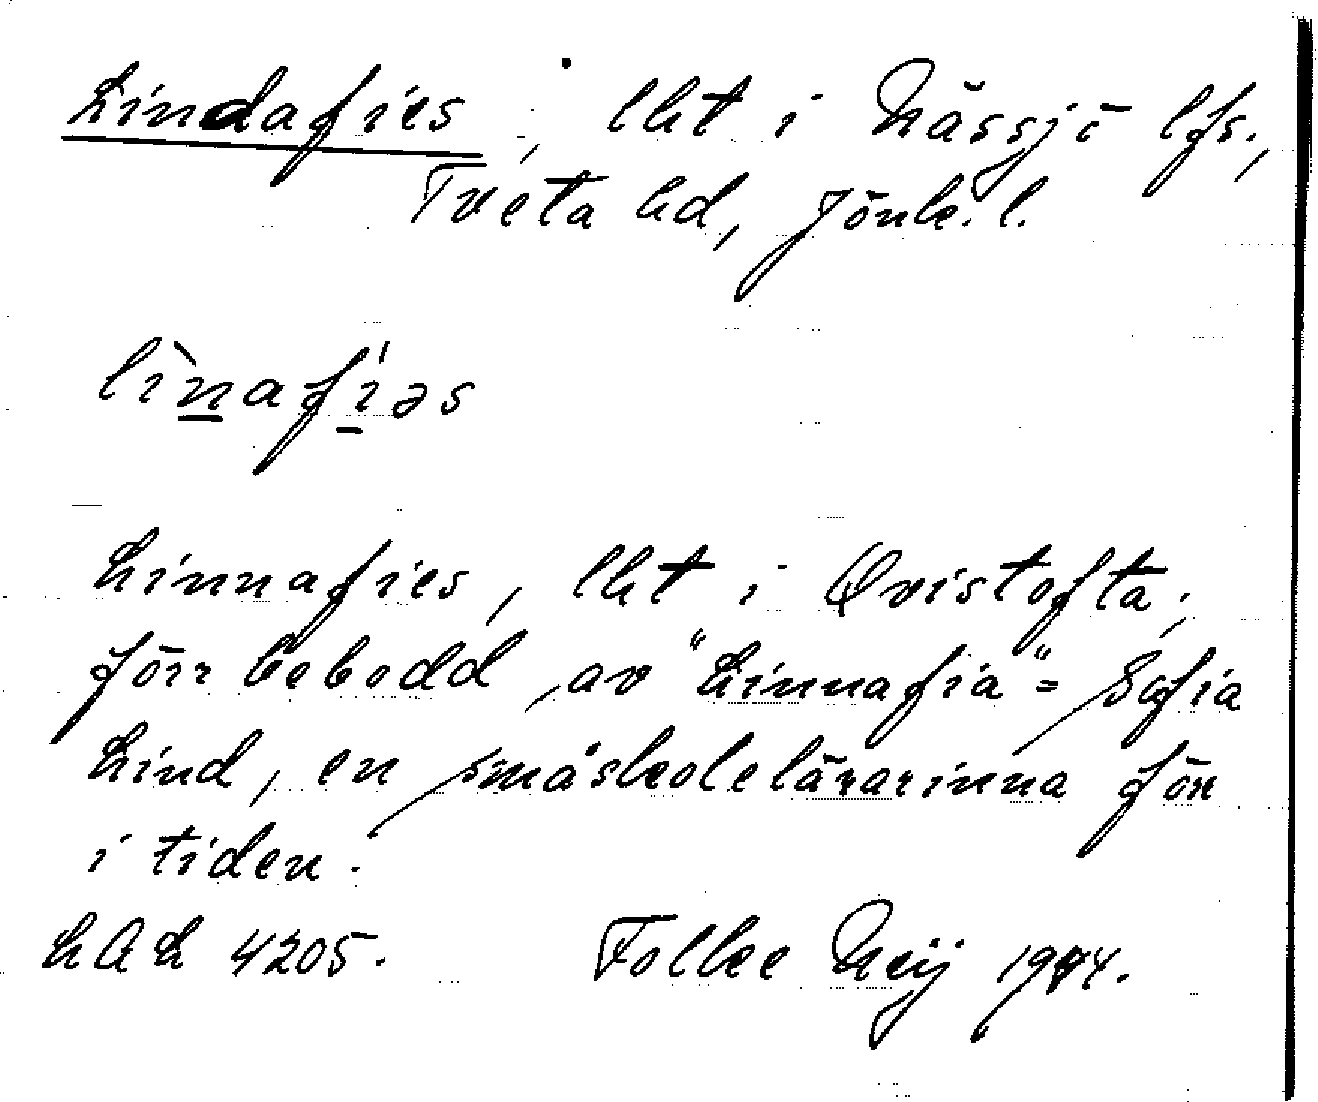 Lindafies, lht i Nässjö lfs.,
Tveta hd, Jönk. l.
lìnafíəs
Linnafies, lht i Qvistofta,
förr bebodd av "Linnafia" = Sofia
Lind, en småskolelärarinna förr
i tiden.
LAL 4205. Folke Neij 1944.